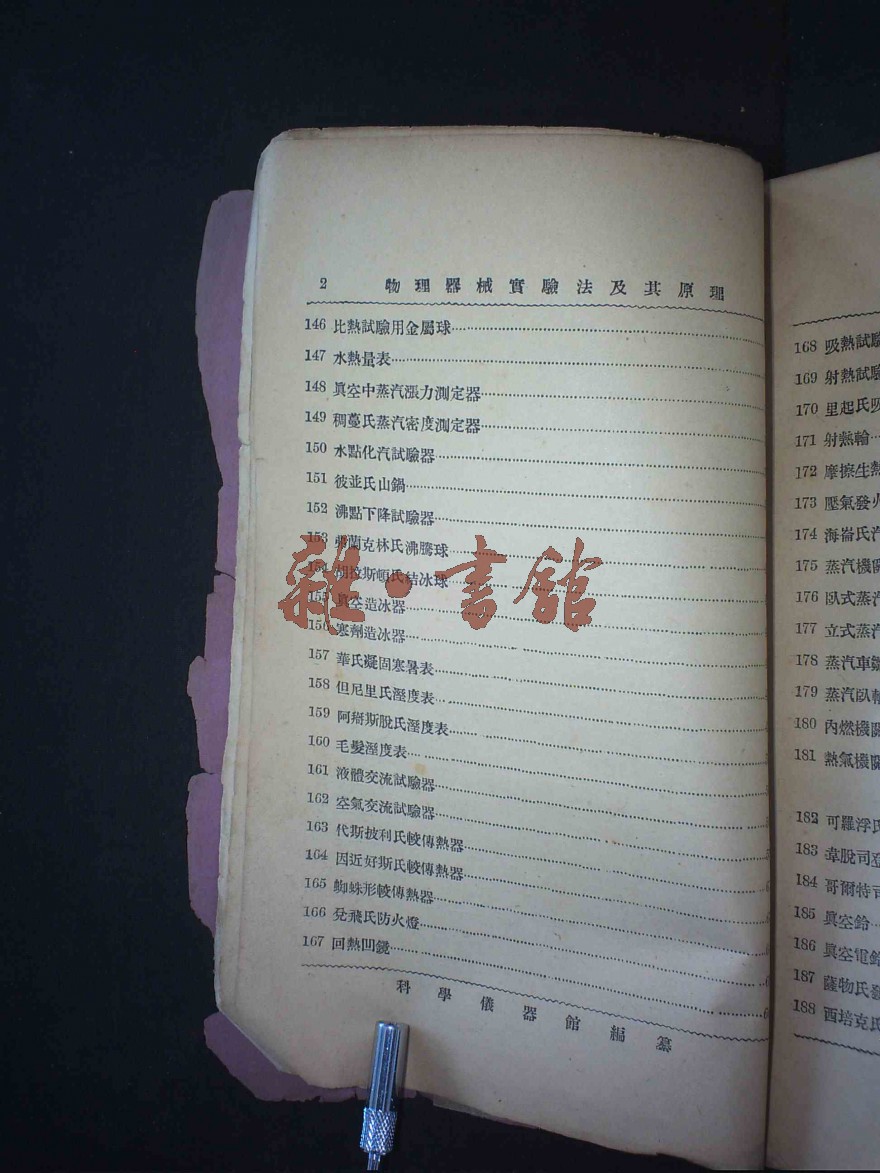 2 物理器械實驗法及其原理
146 比熱試驗用金屬球
147 水熱量表
148 眞空中蒸汽漲力測定器
149 稠蔓氏蒸汽密度測定器
150 水點化汽試驗器
151 彼並氏山鍋
152 沸點下降試驗器
153 蘭克林氏沸騰球
154 拉斯頓氏結冰球
155 眞空造冰器
156 寒劑造冰器
157 華氏凝固寒暑表
158 但尼里氏溼度表
159 阿搿斯脫氏溼度表
160 毛髮溼度表
161 液體交流試驗器
162 空氣交流試驗器
163 代斯披利氏較傳熱器
164 因近好斯氏較傳熱器
165 蜘蛛形較傳熱器
166 兌飛氏防火燈
167 回熱凹鏡
科學儀器館編纂
雜·書館
168 吸熱試
169 射熱試
170 里起氏
171 射熱輪
172 摩擦生
173 壓氣發
174 海崙氏
175 蒸汽機
176 臥式蒸
177 立式蒸
178 蒸汽車
179 蒸汽臥
180 內燃機
181 熱氣機
182 可羅浮
183 韋脫司
184 哥爾特
185 眞空鈴
186 眞空電
187 薩物氏
188 西培克